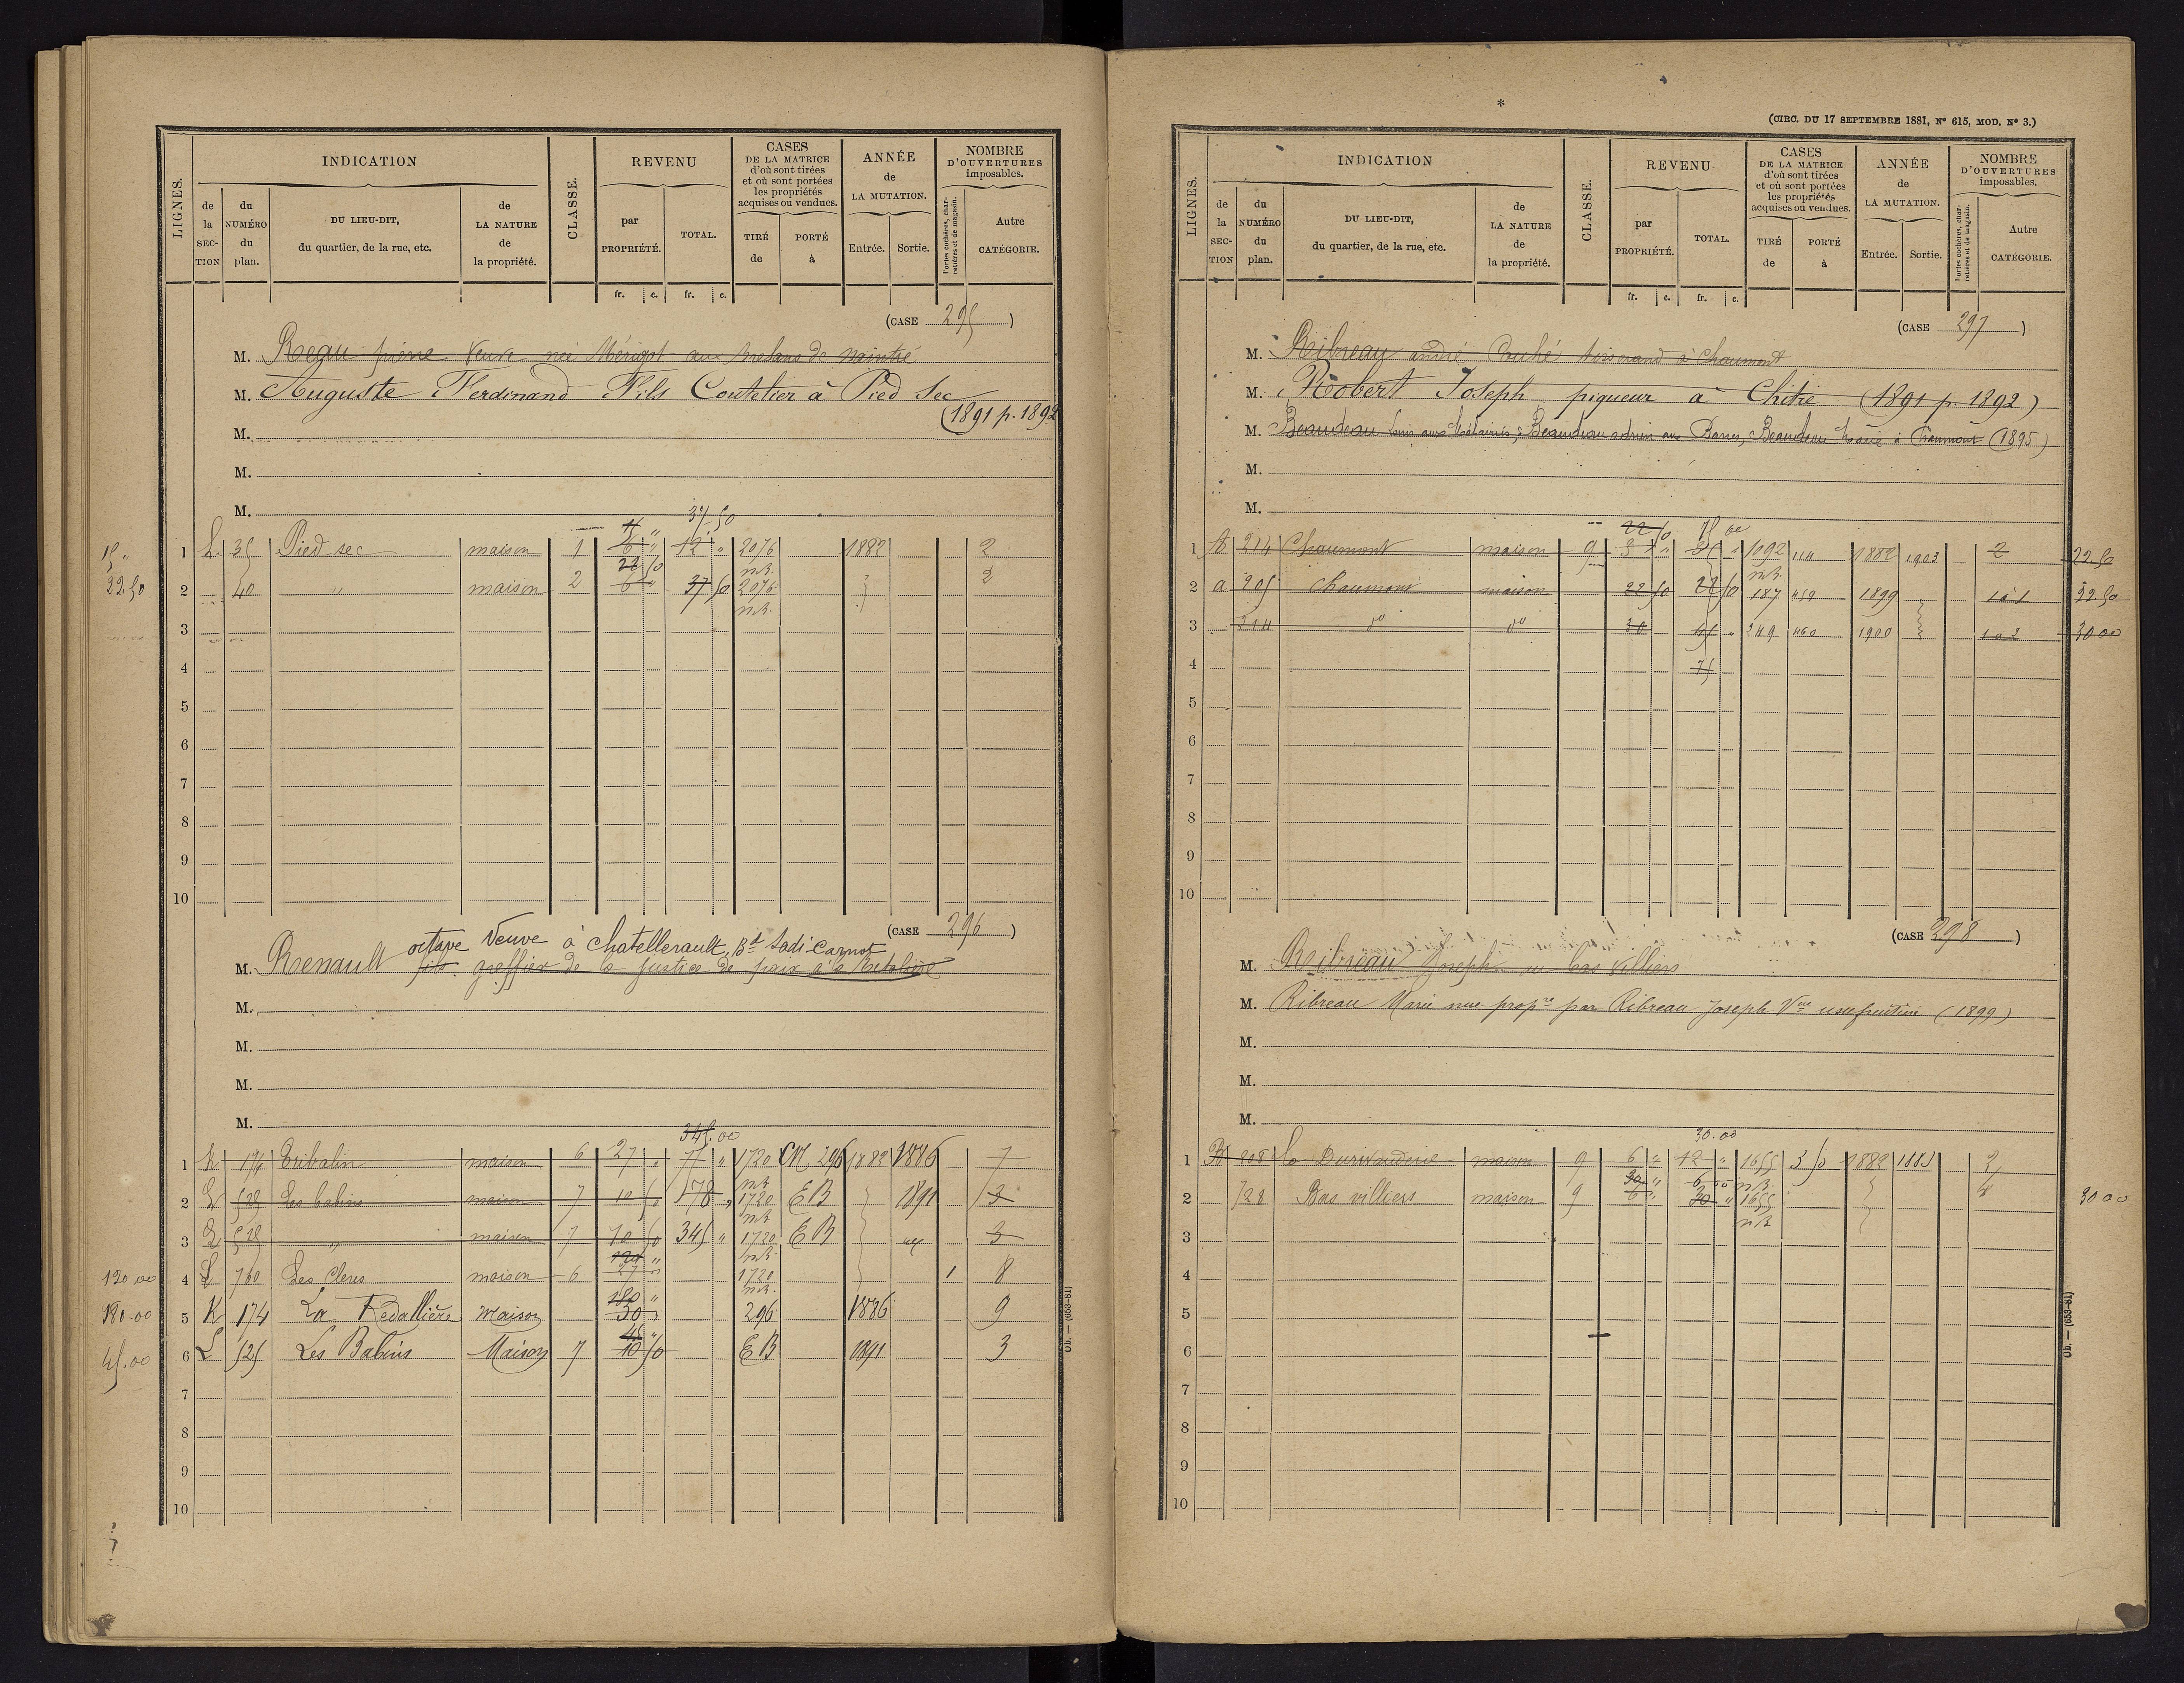 LIGNES.
INDICATION
de la SECTION
du NUMÉRO du plan.
DU LIEU-DIT, du quartier, de la rue, etc.
de LA NATURE de la propriété.
CLASSE.
REVENU
par PROPRIÉTÉ.
TOTAL.
fr. c. fr. c.
CASES DE LA MATRICE d'où sont tirées et où sont portées les propriétés acquises ou vendues.
TIRÉ de
PORTÉ à
ANNÉE de LA MUTATION.
Entrée. Sortie.
NOMBRE D'OUVERTURES imposables.
Portes cochères, charretières et de magasin.
Autre CATÉGORIE.
(CASE 295)
M. Reau pierre Veuve née Mérigot aux de naintré
M. Auguste Ferdinand Fils Coutelier à Pied Sec
(1891 p. 1892
M.
M.
M.
37 50
15 " 1 L. 35 Pied sec maison 1 6 " 12 " 2076 1882 2
22.50 2 40 " maison 2 6 " 37 50 2076 2
3
4
5
6
7
8
9
10
(CASE 296)
octave Veuve à Chatellerault, Bd Sadi-Carnot
M. Renault fils greffier de la justice de paix à la
M.
M.
M.
M.
345.00
1 K 174 maison 6 27 " 77 " 1720 296 1882 1886 7
2 L 525 Les babins maison 7 10 50 178 " 1720 EB 1891 3
3 L 525 " maison 7 10 50 345 " 1720 EB 3
120.00 4 L 760 Les Cleres maison 6 27 " 1720 1 8
180.00 5 K 174 La Redallière Maison 30 296 1886 9
45.00 6 L 525 Les Babins Maison 7 10 50 EB 1891 3
7
8
9
10
Ob. — (653-81)
*
(CIRC. DU 17 SEPTEMBRE 1881, N° 615, MOD. N° 3.)
LIGNES.
INDICATION
de la SECTION
du NUMÉRO du plan.
DU LIEU-DIT, du quartier, de la rue, etc.
de LA NATURE de la propriété.
CLASSE.
REVENU
par PROPRIÉTÉ.
TOTAL.
fr. c. fr. c.
CASES DE LA MATRICE d'où sont tirées et où sont portées les propriétés acquises ou vendues.
TIRÉ de
PORTÉ à
ANNÉE de LA MUTATION.
Entrée. Sortie.
NOMBRE D'OUVERTURES imposables.
Portes cochères, charretières et de magasin.
Autre CATÉGORIE.
(CASE 297)
M. Ribreau andré Couhé tisserand à Chaumont
M. Robert Joseph piqueur à Chitré (1891 p. 1892)
M. Beaudeau Louis aux Métairies, Beaudeau adrien aux Barres, Beaudeau Marie à Chaumont (1895)
M.
M.
22 50
1 214 Chaumont maison 9 1092 114 1882 1903 2 22.50
2 a 205 Chaumont maison 22 50 22 50 187 459 1899 1 à 1 22.50
3 214 do do 30 45 " 249 460 1900 1 à 2 30 00
4 75
5
6
7
8
9
10
(CASE 298)
M. Ribreau Joseph au bas Villiers
M. Ribreau Marie nue-propre par Ribreau Joseph Vve usufruitière (1899)
M.
M.
M.
30.00
1 208 maison 9 6 " 12 " 1655 1882 1885 2
2 728 Bas villiers maison 9 6 " 30 " 1655 30 00
3
4
5
6
7
8
9
10
Ob. — (653-81)